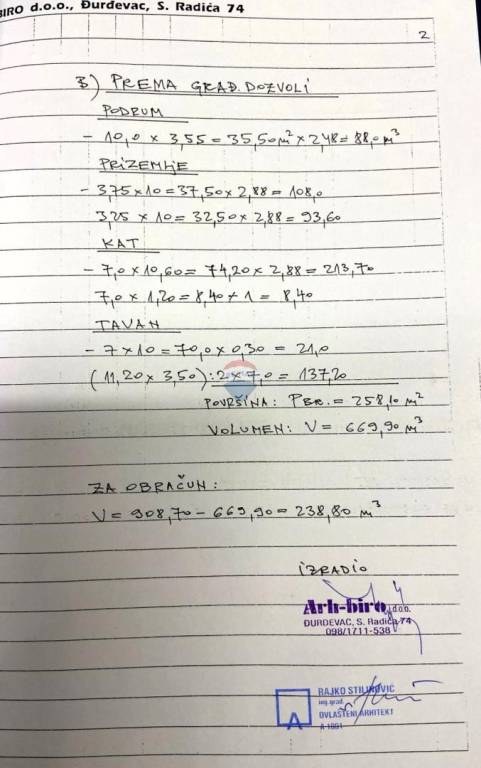 BIRO d.o.o., Đurđevac, S. Radića 74
2
B) PREMA GRAĐ. DOZVOLI
PODRUM
- 10,0 x 3,55 = 35,50 m² x 2,48 = 88,0 m³
PRIZEMLJE
- 3,75 x 10 = 37,50 x 2,88 = 108,0
3,25 x 10 = 32,50 x 2,88 = 93,60
KAT
- 7,0 x 10,60 = 74,20 x 2,88 = 213,70
7,0 x 1,20 = 8,40 x 1 = 8,40
TAVAN
- 7 x 10 = 70,0 x 0,30 = 21,0
(11,20 x 3,50) : 2 x 7,0 = 137,20
POVRŠINA: PBR. = 258,10 m²
VOLUMEN: V = 669,90 m³
ZA OBRAČUN:
V = 908,70 - 669,90 = 238,80 m³
IZRADIO
Arh-biro j.d.o.o.
ĐURĐEVAC, S. Radića 74
098/1711-538
RAJKO STILINOVIĆ
ing.građ.
OVLAŠTENI ARHITEKT
A